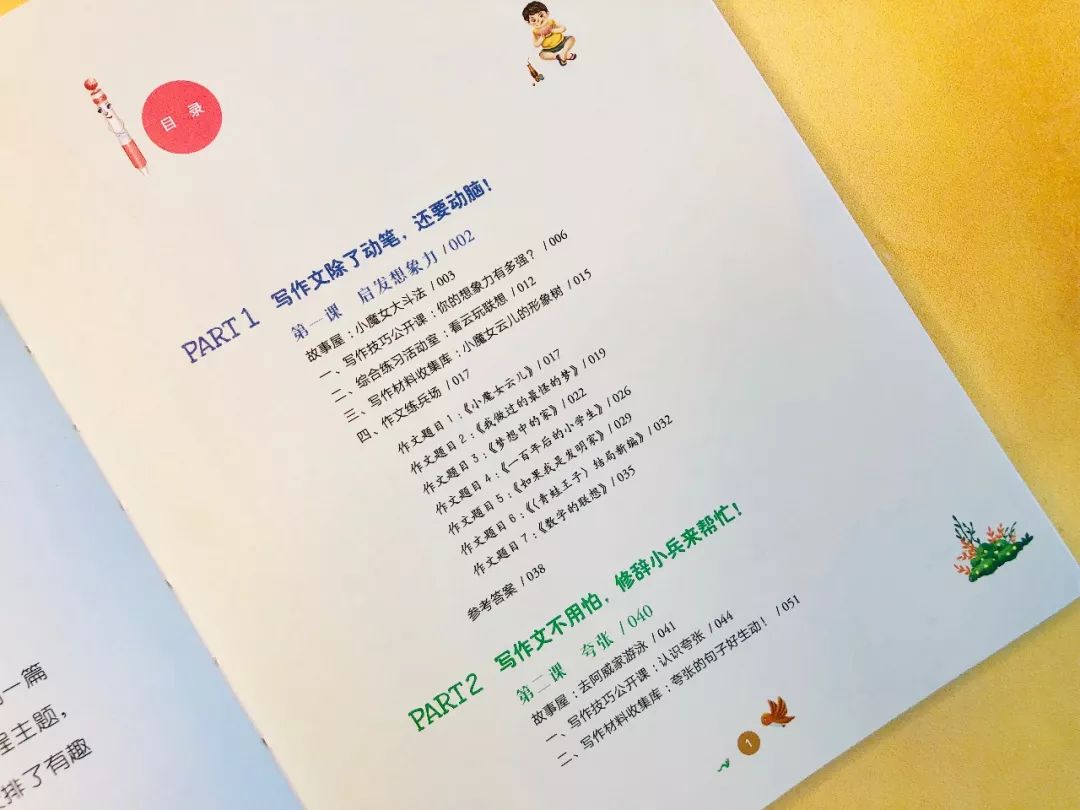 目 录
PART 1 写作文除了动笔，还要动脑！
第一课 启发想象力 / 002
故事屋：小魔女大斗法 / 003
一、写作技巧公开课：你的想象力有多强？ / 006
二、综合练习活动室：看云玩联想 / 012
三、写作材料收集库：小魔女云儿的形象树 / 015
四、作文练兵场 / 017
作文题目 1：《小魔女云儿》 / 017
作文题目 2：《我做过的最怪的梦》 / 019
作文题目 3：《梦想中的家》 / 022
作文题目 4：《一百年后的小学生》 / 026
作文题目 5：《如果我是发明家》 / 029
作文题目 6：《〈青蛙王子〉结局新编》 / 032
作文题目 7：《数字的联想》 / 035
参考答案 / 038
PART 2 写作文不用怕，修辞小兵来帮忙！
第二课 夸张 / 040
故事屋：去阿威家游泳 / 041
一、写作技巧公开课：认识夸张 / 044
二、写作材料收集库：夸张的句子好生动！ / 051
1
一篇
主题，
排了有趣